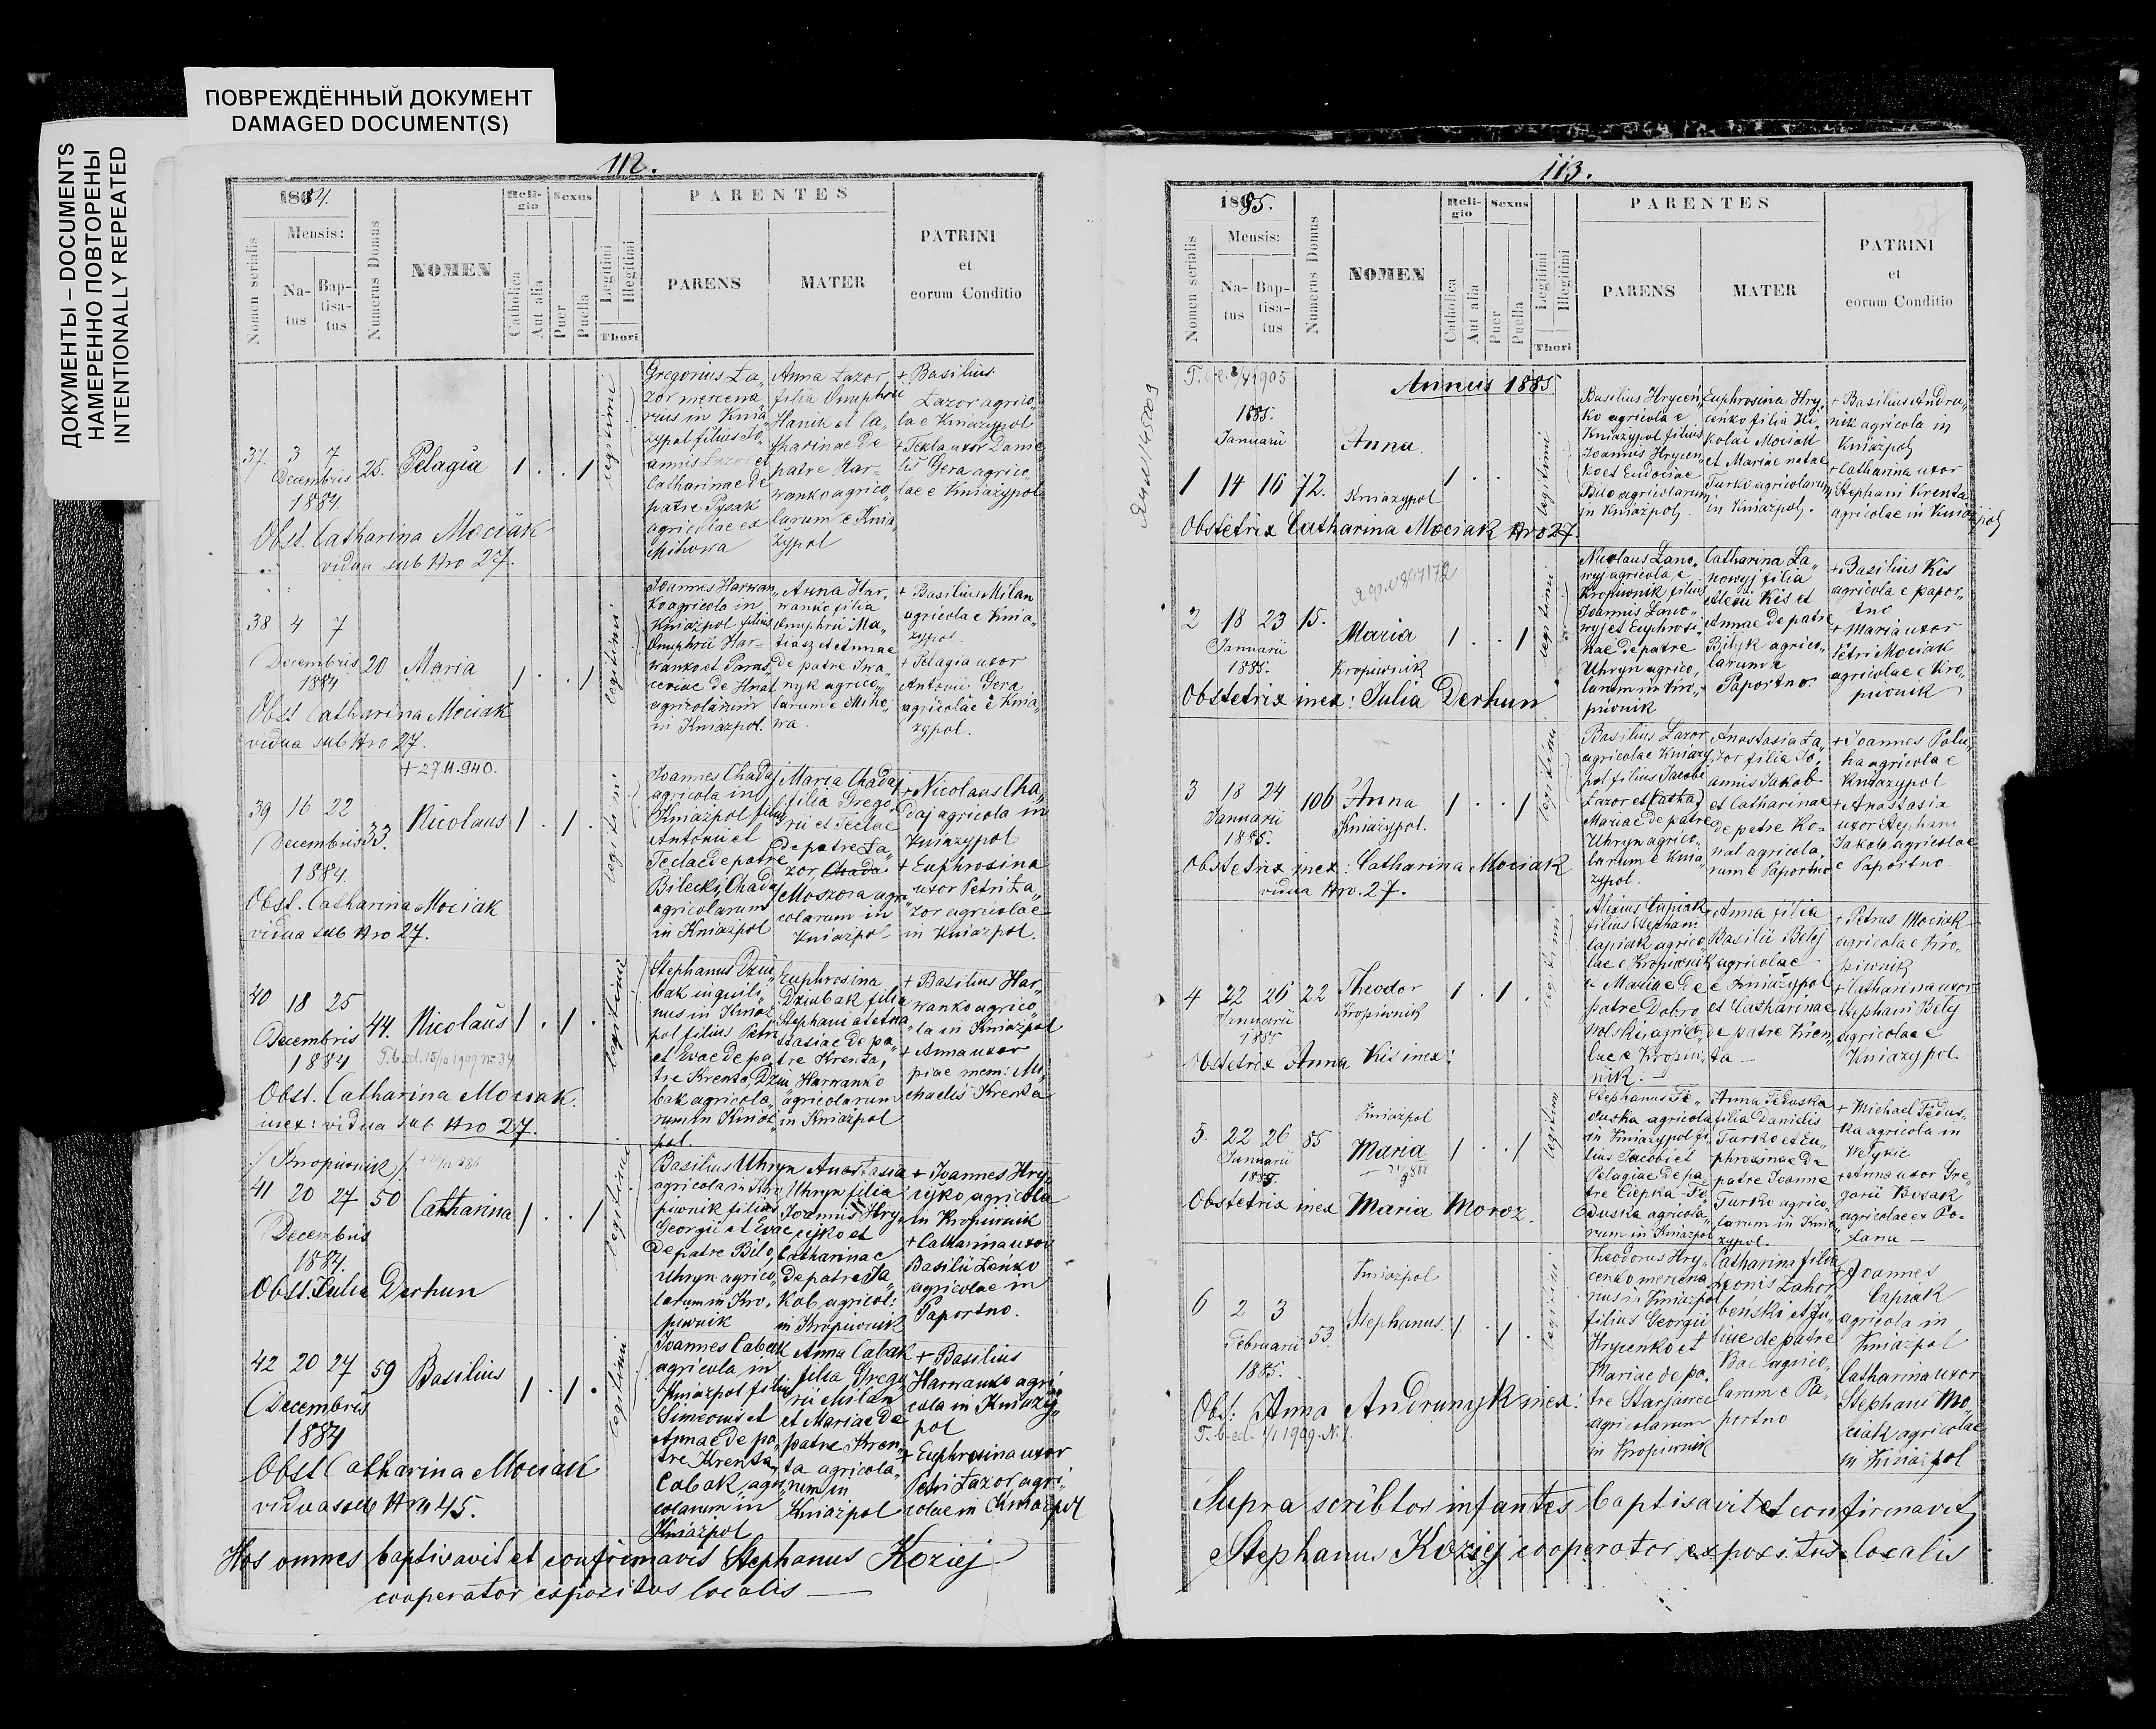 ПОВРЕЖДЁННЫЙ ДОКУМЕНТ
DAMAGED DOCUMENT(S)
ДОКУМЕНТЫ – DOCUMENTS
НАМЕРЕННО ПОВТОРЕНЫ
INTENTIONALLY REPEATED
112.
1884.
Nomen serialis
Mensis:
Na-
tus
Bap-
tisa-
tus
Numerus Domus
NOMEN
Reli-
gio
Catholica
Aut alia
Sexus
Puer
Puella
Legitimi
Illegitimi
Thori
PARENTES
PARENS
MATER
PATRINI
et
eorum Conditio
37. 3 7
Decembris
1884.
25. Pelagia 1 . . 1
legitimi
Gregorius Ła„
zor mercena„
rius in Knia„
zypol filius Jo„
annis Lazor et
Catharinae de
patre Pysak
agricolae ex
Mihowa
Anna Łazor
filia Onuphrii
Hanik et Ca„
tharinae de
patre Har=
wanko agrico„
larum e Knia„
zypol
+ Basilius
Łazor agrico„
la e Kniazypol
+ Tekla uxor Danie„
lis Gera agrico„
lae e Kniazypol
Obst. Catharina Mociak
vidua sub Nro 27.
38 4 7
Decembris
1884
20 Maria 1 . . 1
legitimi
Joannes Harwan„
ko agricola in
Kniazpol filius
Onuphrii Har-
wanko et Paras„
ceviae de Hnat
agricolarum
in Kniazpol.
Anna Har„
wanko filia
Onuphrii Ma„
tiasz et Annae
de patre Iwa„
nyk agrico„
larum e Miho„
wa.
+ Basilius Milan
agricola e Knia„
zypol.
+ Pelagia uxor
Antonii Gera
agricolae e Knia„
zypol.
Obst Catharina Mociak
vidua sub Nro 27.
+ 27.11.940.
39 16 22
Decembris
1884.
33. Nicolaus 1 . 1 .
legitimi
Joannes Chadaj
agricola in
Kniazpol filius
Antonii et
Teclae de patre
Bilecki, Chadaj
agricolarum
in Kniazpol
Maria Chadaj
filia Grego„
rii et Teclae
de patre Ła„
zor, Chada
Moszora agri„
colarum in
Kniazpol
+ Nicolaus Cha„
daj agricola in
Kniazypol
+ Euphrosina
uxor Petri Ła„
zor agricolae
in Kniazpol.
Obst. Catharina Mociak
vidua sub Nro 27.
40 18 25
Decembris
1884
44. Nicolaus 1 . 1 .
legitimi
T.b.ed. 15/10 1909 № 34
Stephanus Dziu„
bak inquili„
nus in Kniaz„
pol filius Petri
et Evae de pa„
tre Krenta, Dziu„
bak agricola„
rum in Kniaz„
pol.
Euphrosina
Dziubak filia
Stephani et Ana„
stasiae de pa„
tre Krenta,
Harwanko
agricolarum
in Kniazpol
+ Basilius Har„
wanko agrico„
la in Kniazpol
+ Anna uxor
piae mem: Mi„
chaelis Krenta
Obst. Catharina Mociak.
inex: vidua sub Nro 27.
/ Kropiwnik /
41 20 27
Decembris
1884.
50 Catharina 1 . . 1
legitimi
Basilius Uhryn
agricola in Kro„
piwnik filius
Georgii et Evae
de patre Bilo,
Uhryn agrico„
larum in Kro„
piwnik
Anastasia
Uhryn filia
Joannis Hry„
cijko et
Catharinae
de patre Ja„
kob, agricol:
in Kropiwnik
+ Joannes Hry„
cijko agricola
in Kropiwnik
+ Catharina uxor
Basilii Zenko
agricolae in
Paportno.
Obst. Julia Derhun
42 20 27
Decembris
1884
59 Basilius 1 . 1 .
legitimi
Joannes Cabak
agricola in
Kniazpol filius
Simeonis et
Annae de pa„
tre Krenta,
Cabak, agri„
colarum in
Kniazpol
Anna Cabak
filia Grego„
rii Milan
et Mariae de
patre Kren„
ta agricola„
rum in
Kniazpol
+ Basilius
Harwanko agri„
cola in Kniazy„
pol
+ Euphrosina uxor
Petri Łazor agri„
colae in Kniazpol
Obst Catharina Mociak
vidua sub Nro 45.
Hos omnes baptisavit et confirmavit Stephanus Koziej
cooperator expositus localis
113.
1885.
Nomen serialis
Mensis:
Na-
tus
Bap-
tisa-
tus
Numerus Domus
NOMEN
Reli-
gio
Catholica
Aut alia
Sexus
Puer
Puella
Legitimi
Illegitimi
Thori
PARENTES
PARENS
MATER
PATRINI
et
eorum Conditio
Annus 1885
1885.
Januarii
1 14 16 72.
Anna.
Kniazypol
1 . .
legitimi
Basilius Hrycen„
ko agricola e
Kniazypol filius
Joannis Hrycen„
ko et Eudociae
Bilo agricolarum
in Kniazpolj.
Euphrosina Hry„
cenko filia Ni„
kolai Mociak
et Mariae natae
Turko agricolarum
in Kniazpolj.
+ Basilius Andru„
nik agricola in
Kniazpolj
+ Catharina uxor
Stephani Krenta
agricolae in Kniazpolj
Obstetrix Catharina Mociak Nro 27.
2 18 23 15.
Januarii
1885.
Maria
Kropiwnik
1 . . 1
legitimi
Nicolaus Łano„
wyj agricola e
Kropiwnik filius
Joannis Łano„
wyj et Euphrosi„
nae de patre
Uhryn agrico„
larum in Kro„
piwnik
Catharina Ła„
nowyj filia
Alexii Kis et
Annae de patre
Bilyk agrico„
larum e
Paportno.
+ Basilius Kis
agricola e papor„
tno
+ Maria uxor
Petri Mociak
agricolae e Kro„
piwnik
Obstetrix inex: Julia Derhun
3 18 24
Januarii
1885.
106 Anna
Kniazypol.
1 . . 1
legitimi
Basilius Łazor
agricola e Kniazy„
pol filius Jacobi
Lazor et (Catha)
Mariae de patre
Uhryn agrico„
larum e Knia„
zypol.
Anastasia Ła„
zor filia Jo„
annis Jakob
et Catharinae
de patre Ko„
wal agricola„
rum e Paportno
+ Joannes Palu„
ha agricola e
Kniazypol
+ Anastasia
uxor Stephani
Jakob agricolae
e Paportno.
Obstetrix inex: Catharina Mociak
vidua Nro. 27.
4 22 26 22
Januarii
1885
Theodor
Kropiwnik
1 . 1 .
legitimi
Alexius Capiak
filius Stephani
Capiak agrico„
lae e Kropiwnik
et Mariae de
patre Dobro„
wolski agrico„
lae e Kropiw„
nik.
Anna filia
Basilii Bilej
agricolae
e Kniazypol
et Catharinae
de patre Kren„
ta —
+ Petrus Mociak
agricola e Kro„
piwnik
+ Catharina uxor
Stephani Bilej
agricolae e
Kniazypol.
Obstetrix Anna Kis inex:
5. 22 26 85
Januarii
1885.
Kniazpol
Maria
1 . . 1
legitimi
Stephanus Fe„
duska agricola
in Kniazypol fi„
lius Jacobi et
Pelagiae de pa„
tre Ciepka Fe„
duska agricola„
rum in Kniazpol
Anna Feduska
filia Danielis
Turko et Eu„
phrosinae de
patre Joanne
Turko agrico„
larum in Knia„
zypol.
+ Michael Fedus„
ka agricola in
Welykie
+ Anna uxor Gre„
gorii Bosak
agricolae ex Po„
lana —
Obstetrix inex Maria Moroz.
6 2 3
Februarii
1885.
53.
Kniazpol
Stephanus 1 . 1 .
legitimi
Theodorus Hry„
cenko mercena„
rius in Kniazpol
filius Georgii
Hrycenko et
Mariae de pa„
tre Starjawec
agricolarum
in Kropiwnik
Catharina filia
Leonis Zahor„
benski et Ju„
liae de patre
Bac agrico„
larum e Pa„
portno
+ Joannes
Capiak
agricola in
Kniazpol
Catharina uxor
Stephani Mo„
ciak agricolae
in Kniazpol
Obst: Anna Andrunyk inex:
Supra scribtos infantes baptisavit et confirmavit
Stephanus Koziej cooperator expositus localis